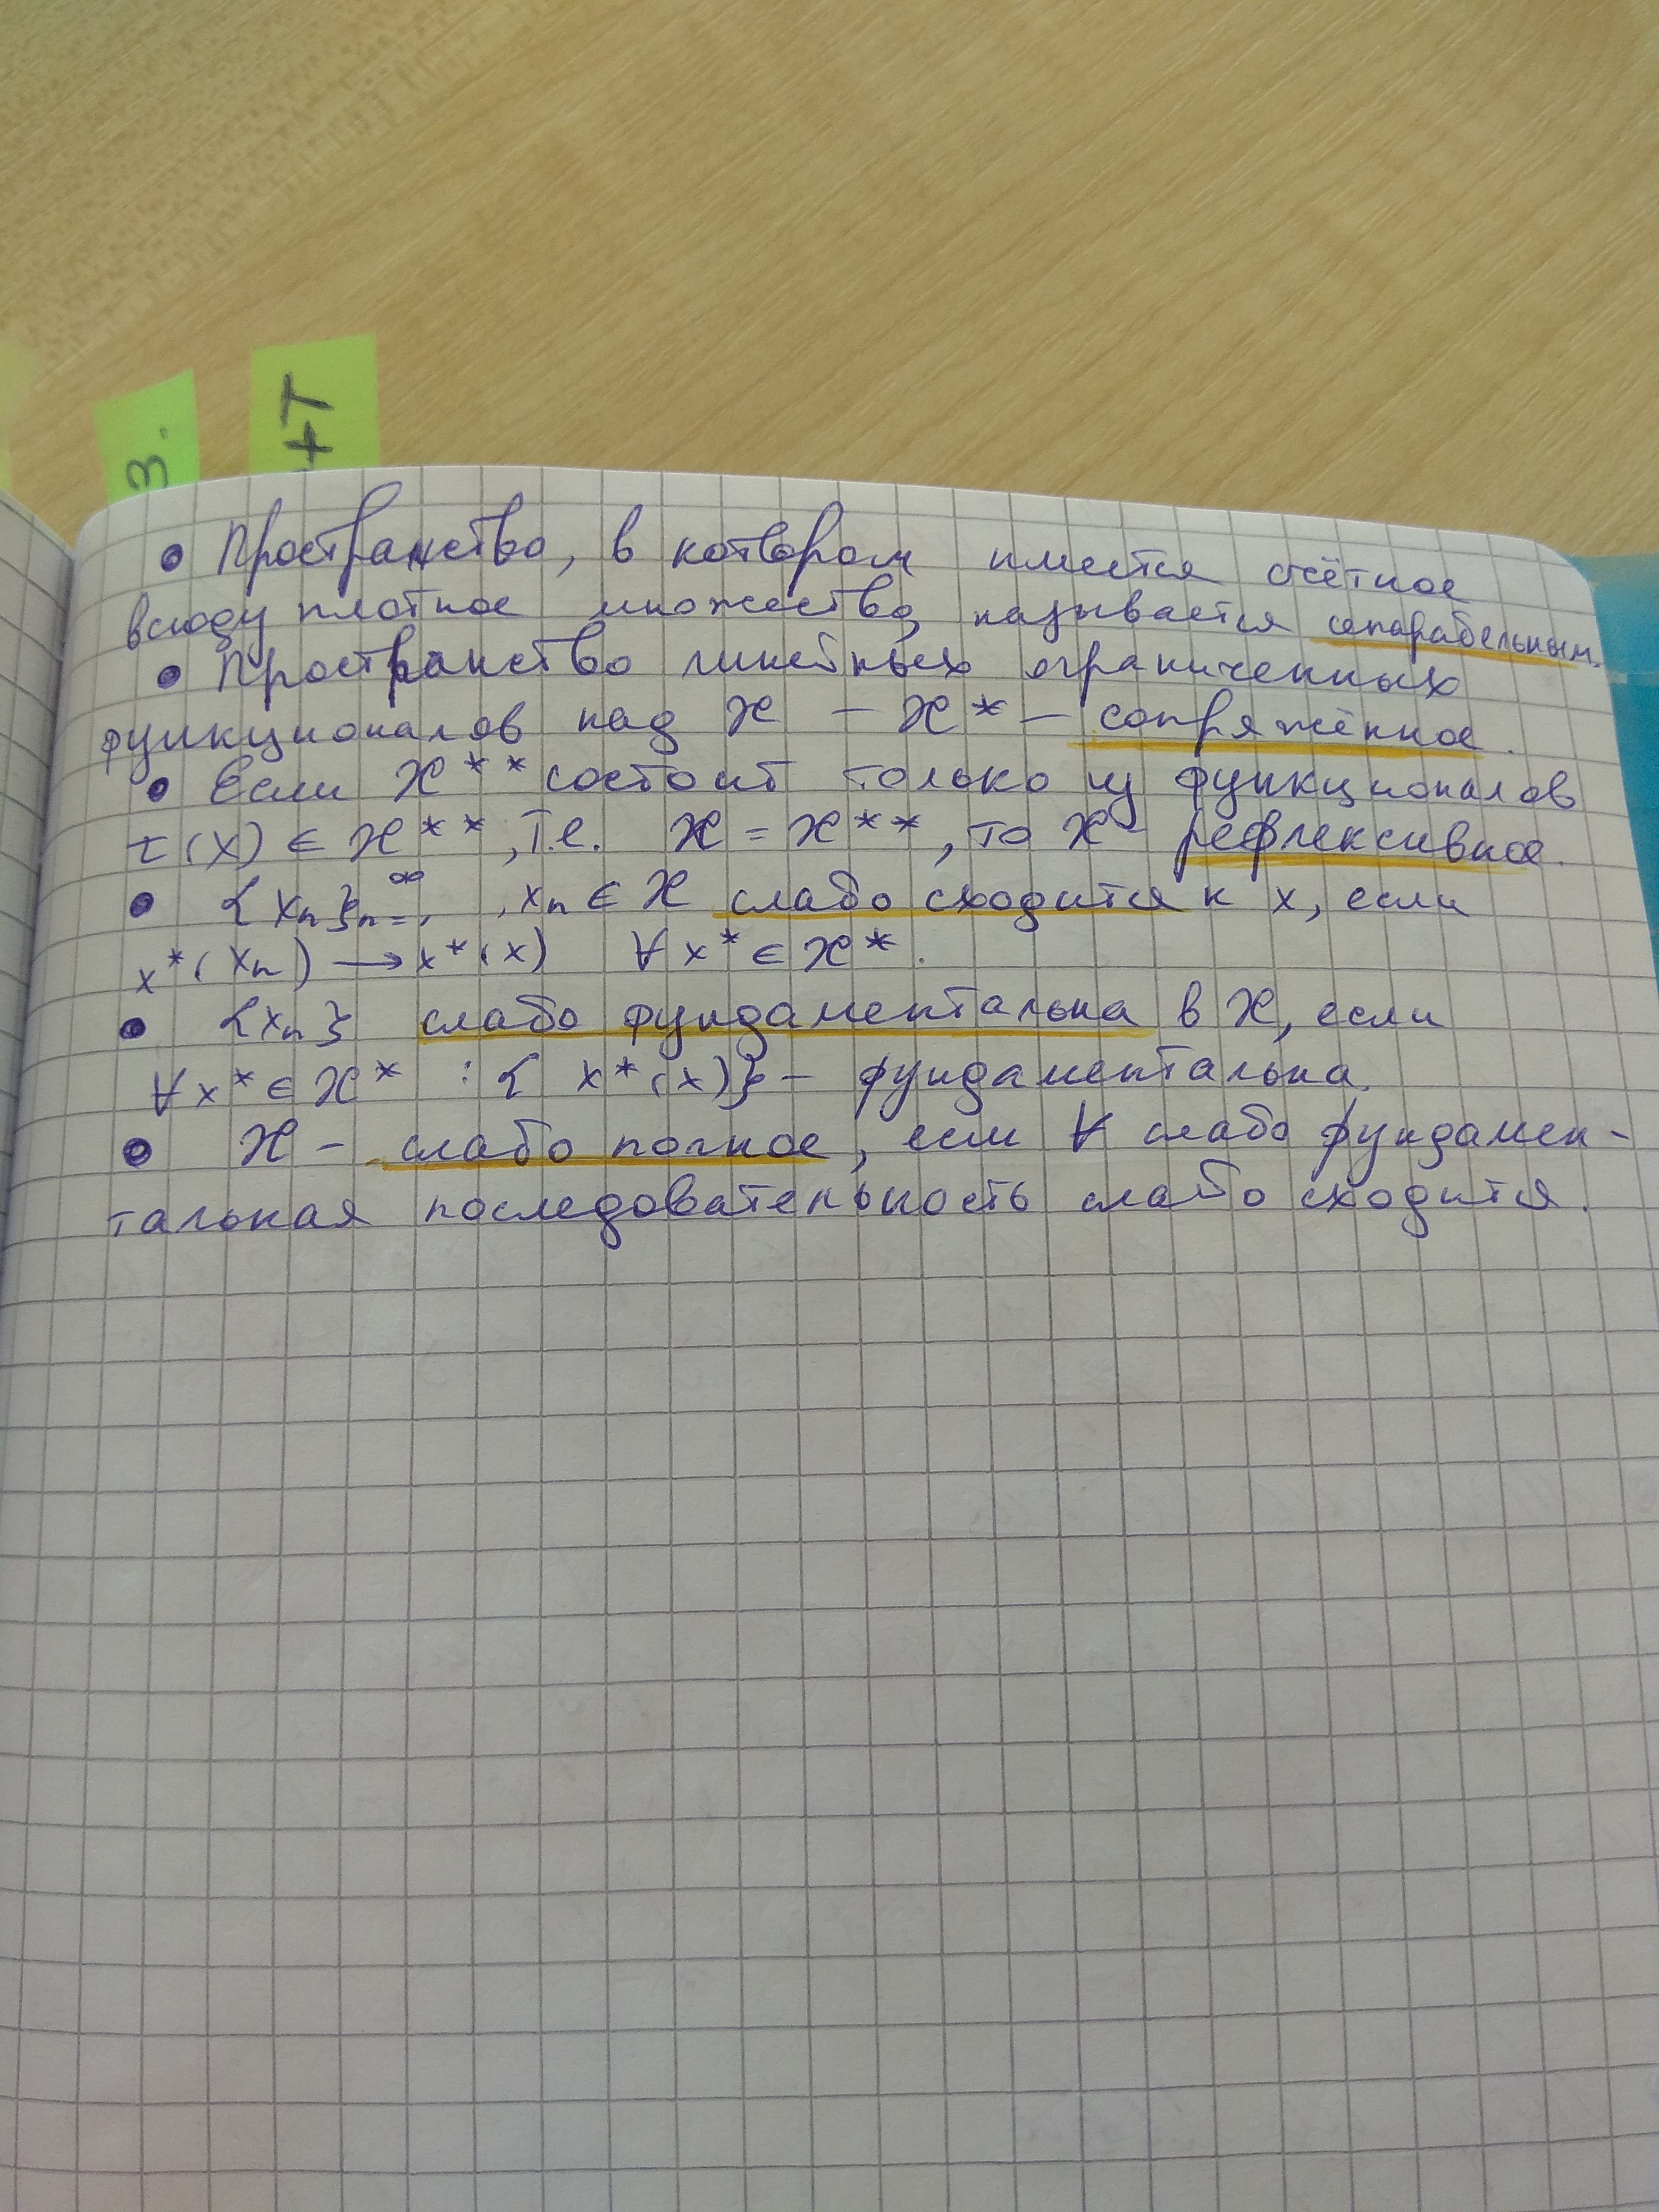 3.
+T
• Пространство, в котором имеется счётное
всюду плотное множество, называется сепарабельным.
• Пространство линейных ограниченных
функционалов над X – X* – сопряжённое.
• Если X** состоит только из функционалов
τ(x) ∈ X**, т.е. X = X**, то X – рефлексивное.
• {xₙ}ₙ₌₁^∞, xₙ ∈ X слабо сходится к x, если
x*(xₙ) → x*(x) ∀x* ∈ X*.
• {xₙ} слабо фундаментальна в X, если
∀x* ∈ X* : { x*(x)} – фундаментальна.
• X – слабо полное, если ∀ слабо фундамен-
тальная последовательность слабо сходится.